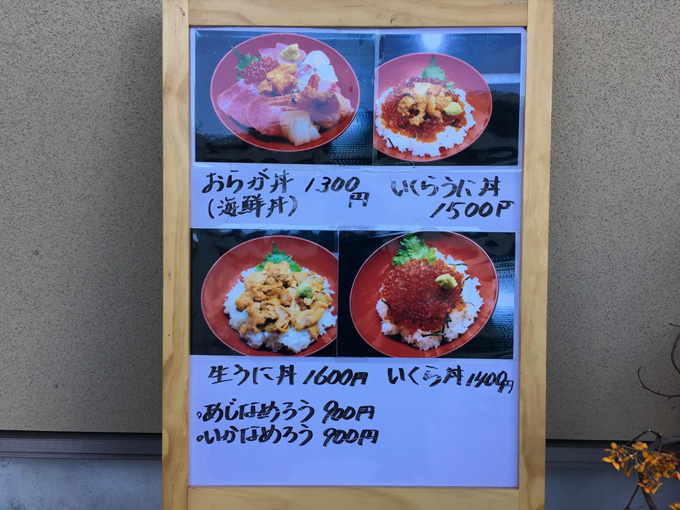 おらが丼 1300円
(海鮮丼)
いくらうに丼
1500円
生うに丼 1600円
いくら丼 1400円
。あじなめろう 900円
。いかなめろう 900円